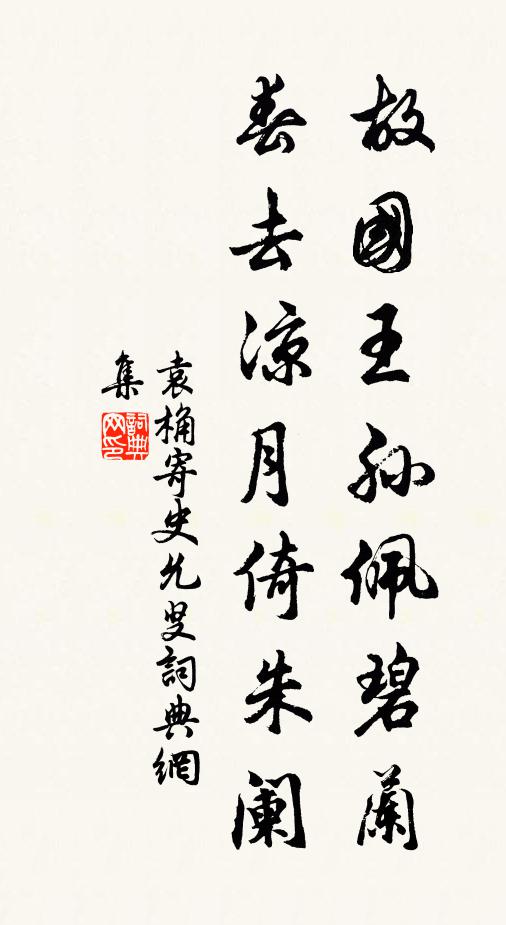 故國王孫佩碧蘭
春去涼月倚朱闌
袁桷寄史允叟詞典網
集
詞典
网印